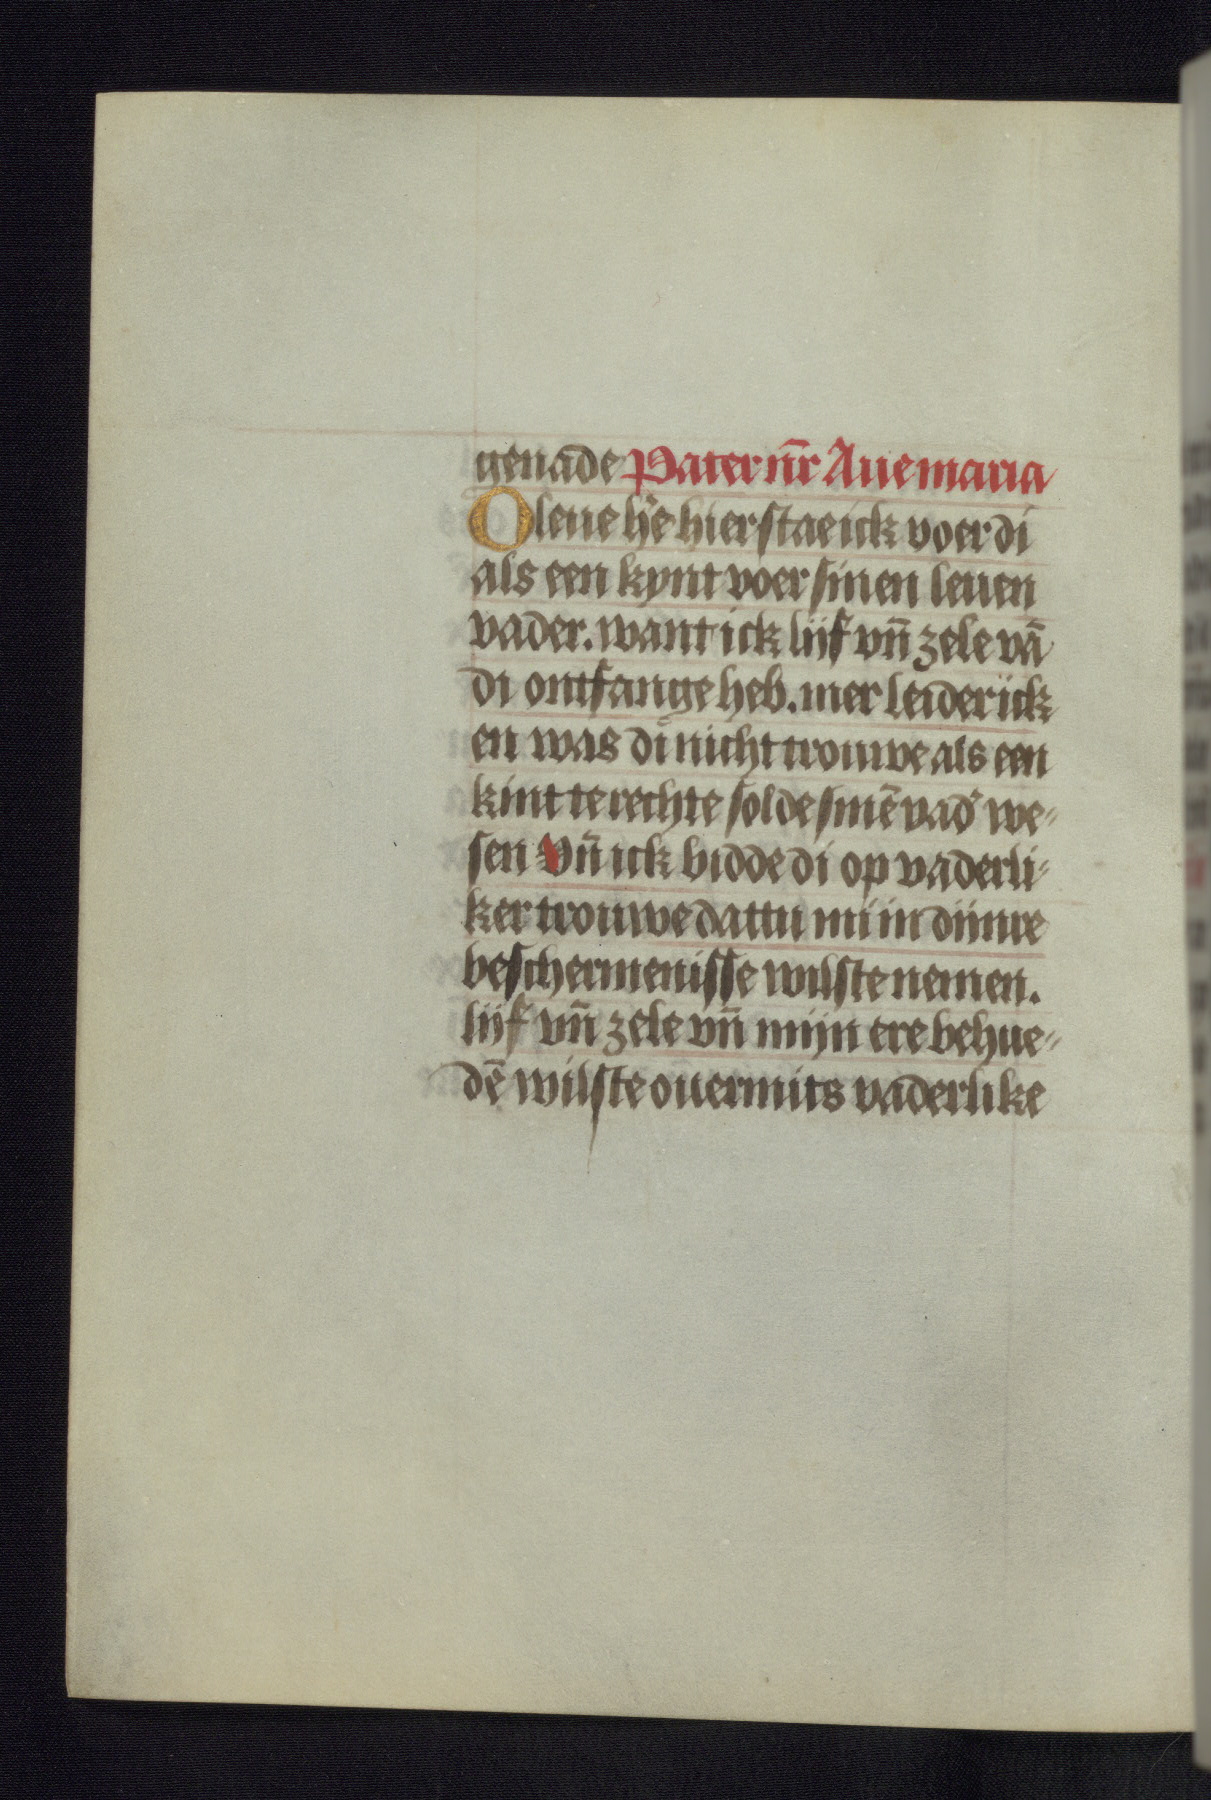 genade Pater nr̄ Aue maria
O leue he͂ hier stae ick voer di
als een kynt voer sinen leuen
vader. want ick lijf vn̄ zele vā
di ontfange heb. mer leider ick
en was di nicht trouwe als een
kint te rechte solde sinē vad' we⸗
sen Vn̄ ick bidde di op vaderli⸗
ker trouwe dattu mi in dijnre
beschermenisse wilste nemen.
lijf vn̄ zele vn̄ mijn ere behue⸗
dē wilste ouermits vaderlike